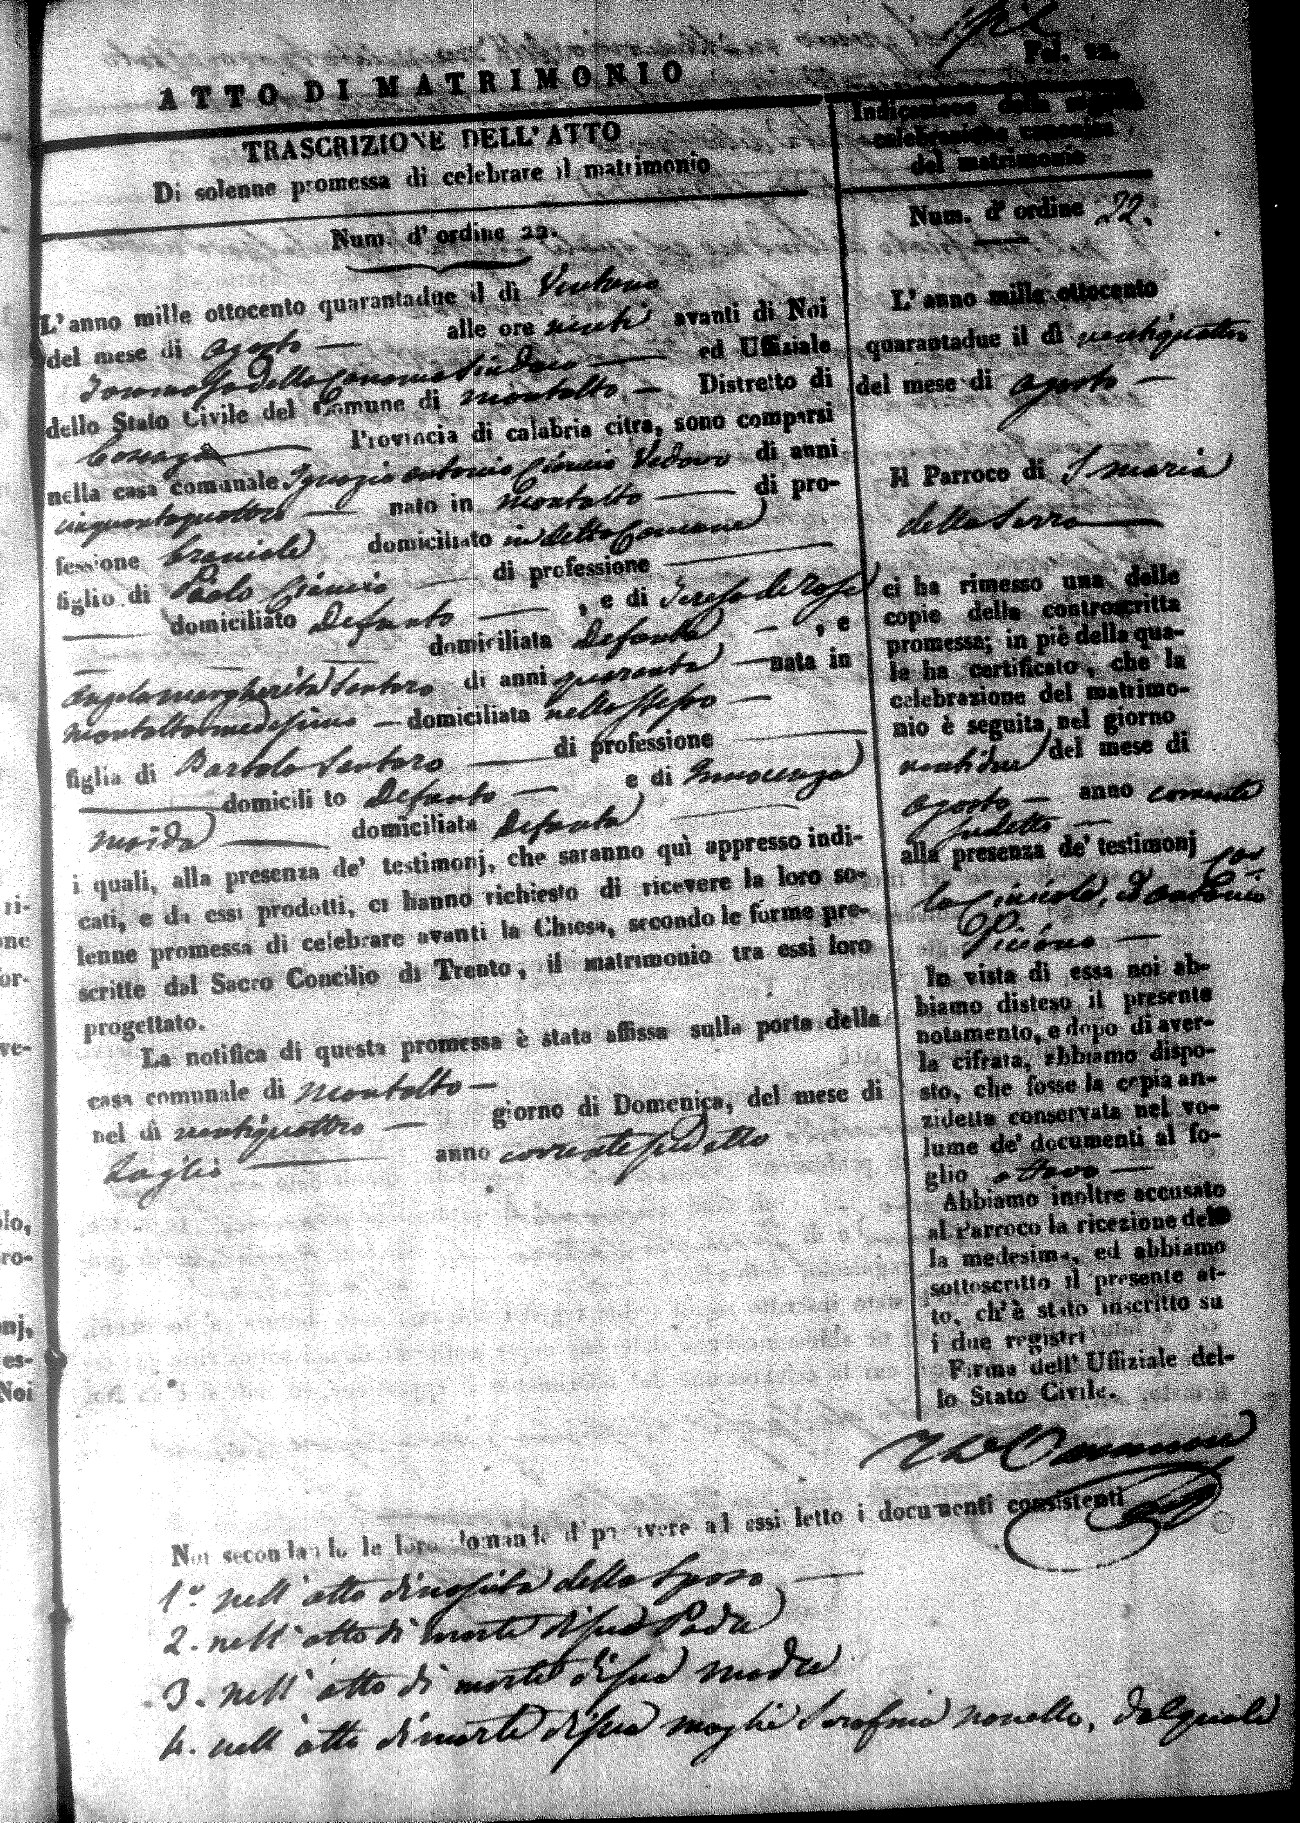 Fol. 22.
ATTO DI MATRIMONIO
TRASCRIZIONE DELL'ATTO
Di solenne promessa di celebrare il matrimonio
Num. d'ordine 22.
L'anno mille ottocento quarantadue il dì Ventuno
del mese di agosto — alle ore venti avanti di Noi
Sindaco — ed Uffiziale
dello Stato Civile del Comune di Montalto — Distretto di
Cosenza — Provincia di calabria citra, sono comparsi
nella casa comunale Ignazio Antonio Ciancio Vedovo di anni
cinquantaquattro — nato in Montalto — di pro-
fessione braciale domiciliato in detto Comune
figlio di Paolo Ciancio — di professione —
— domiciliato Defunto — , e di Teresa de Rose
— domiciliata Defunta — , e
Angela Margherita Santoro di anni quaranta — nata in
Montalto medesimo — domiciliata nello stesso —
figlia di Bartolo Santoro — di professione —
— domicili to Defunto — e di Innocenza
Maida — domiciliata Defunta —
i quali, alla presenza de' testimonj, che saranno quì appresso indi-
cati, e da essi prodotti, ci hanno richiesto di ricevere la loro so-
lenne promessa di celebrare avanti la Chiesa, secondo le forme pre-
scritte dal Sacro Concilio di Trento, il matrimonio tra essi loro
progettato.
La notifica di questa promessa è stata affissa sulla porta della
casa comunale di Montalto —
nel dì ventiquattro — giorno di Domenica, del mese di
Luglio — anno corrente sudetto
Indicazione della seguita
celebrazione canonica
del matrimonio
Num. d'ordine 22.
L'anno mille ottocento
quarantadue il dì ventiquattro
del mese di agosto —
Il Parroco di S. Maria
della Serra —
ci ha rimesso una delle
copie della controscritta
promessa; in piè della qua-
le ha certificato, che la
celebrazione del matrimo-
nio è seguita nel giorno
ventidue del mese di
agosto — anno corrente
sudetto —
alla presenza de' testimonj
In vista di essa noi ab-
biamo disteso il presente
notamento, e dopo di aver-
la cifrata, abbiamo dispo-
sto, che fosse la copia an-
zidetta conservata nel vo-
lume de' documenti al fo-
glio ottavo —
Abbiamo inoltre accusato
al Parroco la ricezione del-
la medesima, ed abbiamo
sottoscritto il presente at-
to, ch'è stato inscritto su
i due registri
Firma dell'Uffiziale del-
lo Stato Civile.
Noi secondando le loro domande d'po avere ad essi letto i documenti consistenti
1.° nell'atto di nascita dello Sposo —
2. nell'atto di morte di suo Padre
3. nell'atto di morte di sua madre
4. nell'atto di morte di sua moglie Serafina Novello, dal quale